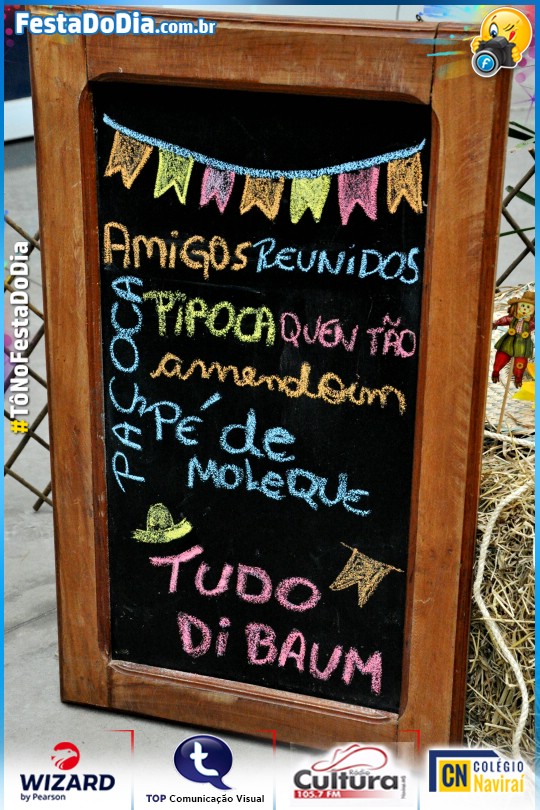 FestaDoDia.com.br
#TôNoFestaDoDia
AMIGOS REUNIDOS
PAÇOCA
PIPOCA QUEN TÃO
amendoim
PÉ de
MOLEQUE
TUDO
Di BAUM
WIZARD
by Pearson
TOP Comunicação Visual
Rádio
Cultura
105.7 FM
CN COLÉGIO
Naviraí